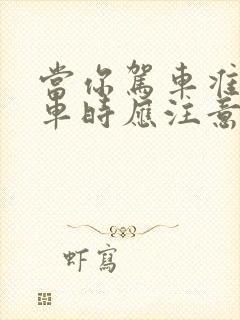 當你駕車准
車時應注意
虾寫